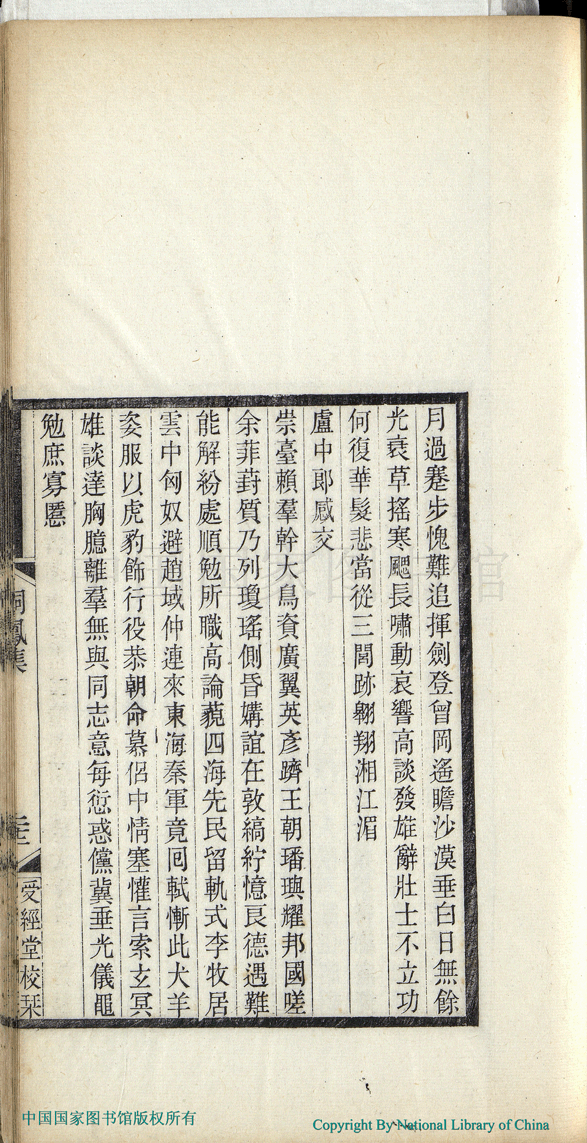 月過蹇步愧難追揮劍登曾岡遙瞻沙漠垂白日無餘
光衰草搖寒颸長嘯動哀響高談發雄辭壯士不立功
何復華髮悲當從三閭跡翱翔湘江湄
盧中郎感交
崇臺賴羣幹大鳥資廣翼英彥躋王朝璠璵耀邦國嗟
余菲葑質乃列瓊瑤側昏媾誼在敦縞紵憶良德遇難
能解紛處順勉所職高論藐四海先民留軌式李牧居
雲中匈奴避趙域仲連來東海秦軍竟回軾慚此犬羊
姿服以虎豹飾行役恭朝命慕侶中情塞懽言索玄冥
雄談達胸臆離羣無與同志意每愆惑儻冀垂光儀黽
勉庶寡慝
桐鳳集
受經堂校栞
中国国家图书馆版权所有
Copyright By National Library of China